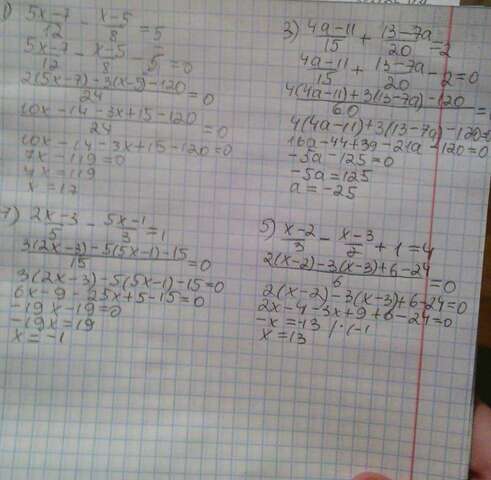 1) (5x-7)/12 - (x-5)/8 = 5
(5x-7)/12 - (x-5)/8 - 5 = 0
(2(5x-7)-3(x-5)-120)/24 = 0
(10x-14-3x+15-120)/24 = 0
10x-14-3x+15-120=0
7x-119=0
7x=119
x=17
3) (4a-11)/15 + (13-7a)/20 = 2
(4a-11)/15 + (13-7a)/20 - 2 = 0
(4(4a-11)+3(13-7a)-120)/60 =
4(4a-11)+3(13-7a)-120=
16a-44+39-21a-120=0
-5a-125=0
-5a=125
a=-25
7) (2x-3)/5 - (5x-1)/3 = 1
(3(2x-3)-5(5x-1)-15)/15 = 0
3(2x-3)-5(5x-1)-15=0
6x+9-25x+5-15=0
-19x-19=0
-19x=19
x=-1
5) (x-2)/3 - (x-3)/2 + 1 = 4
(2(x-2)-3(x-3)+6-24)/6 = 0
2(x-2)-3(x-3)+6-24=0
2x-4-3x+9+6-24=0
-x=13 |·(-1
x=13